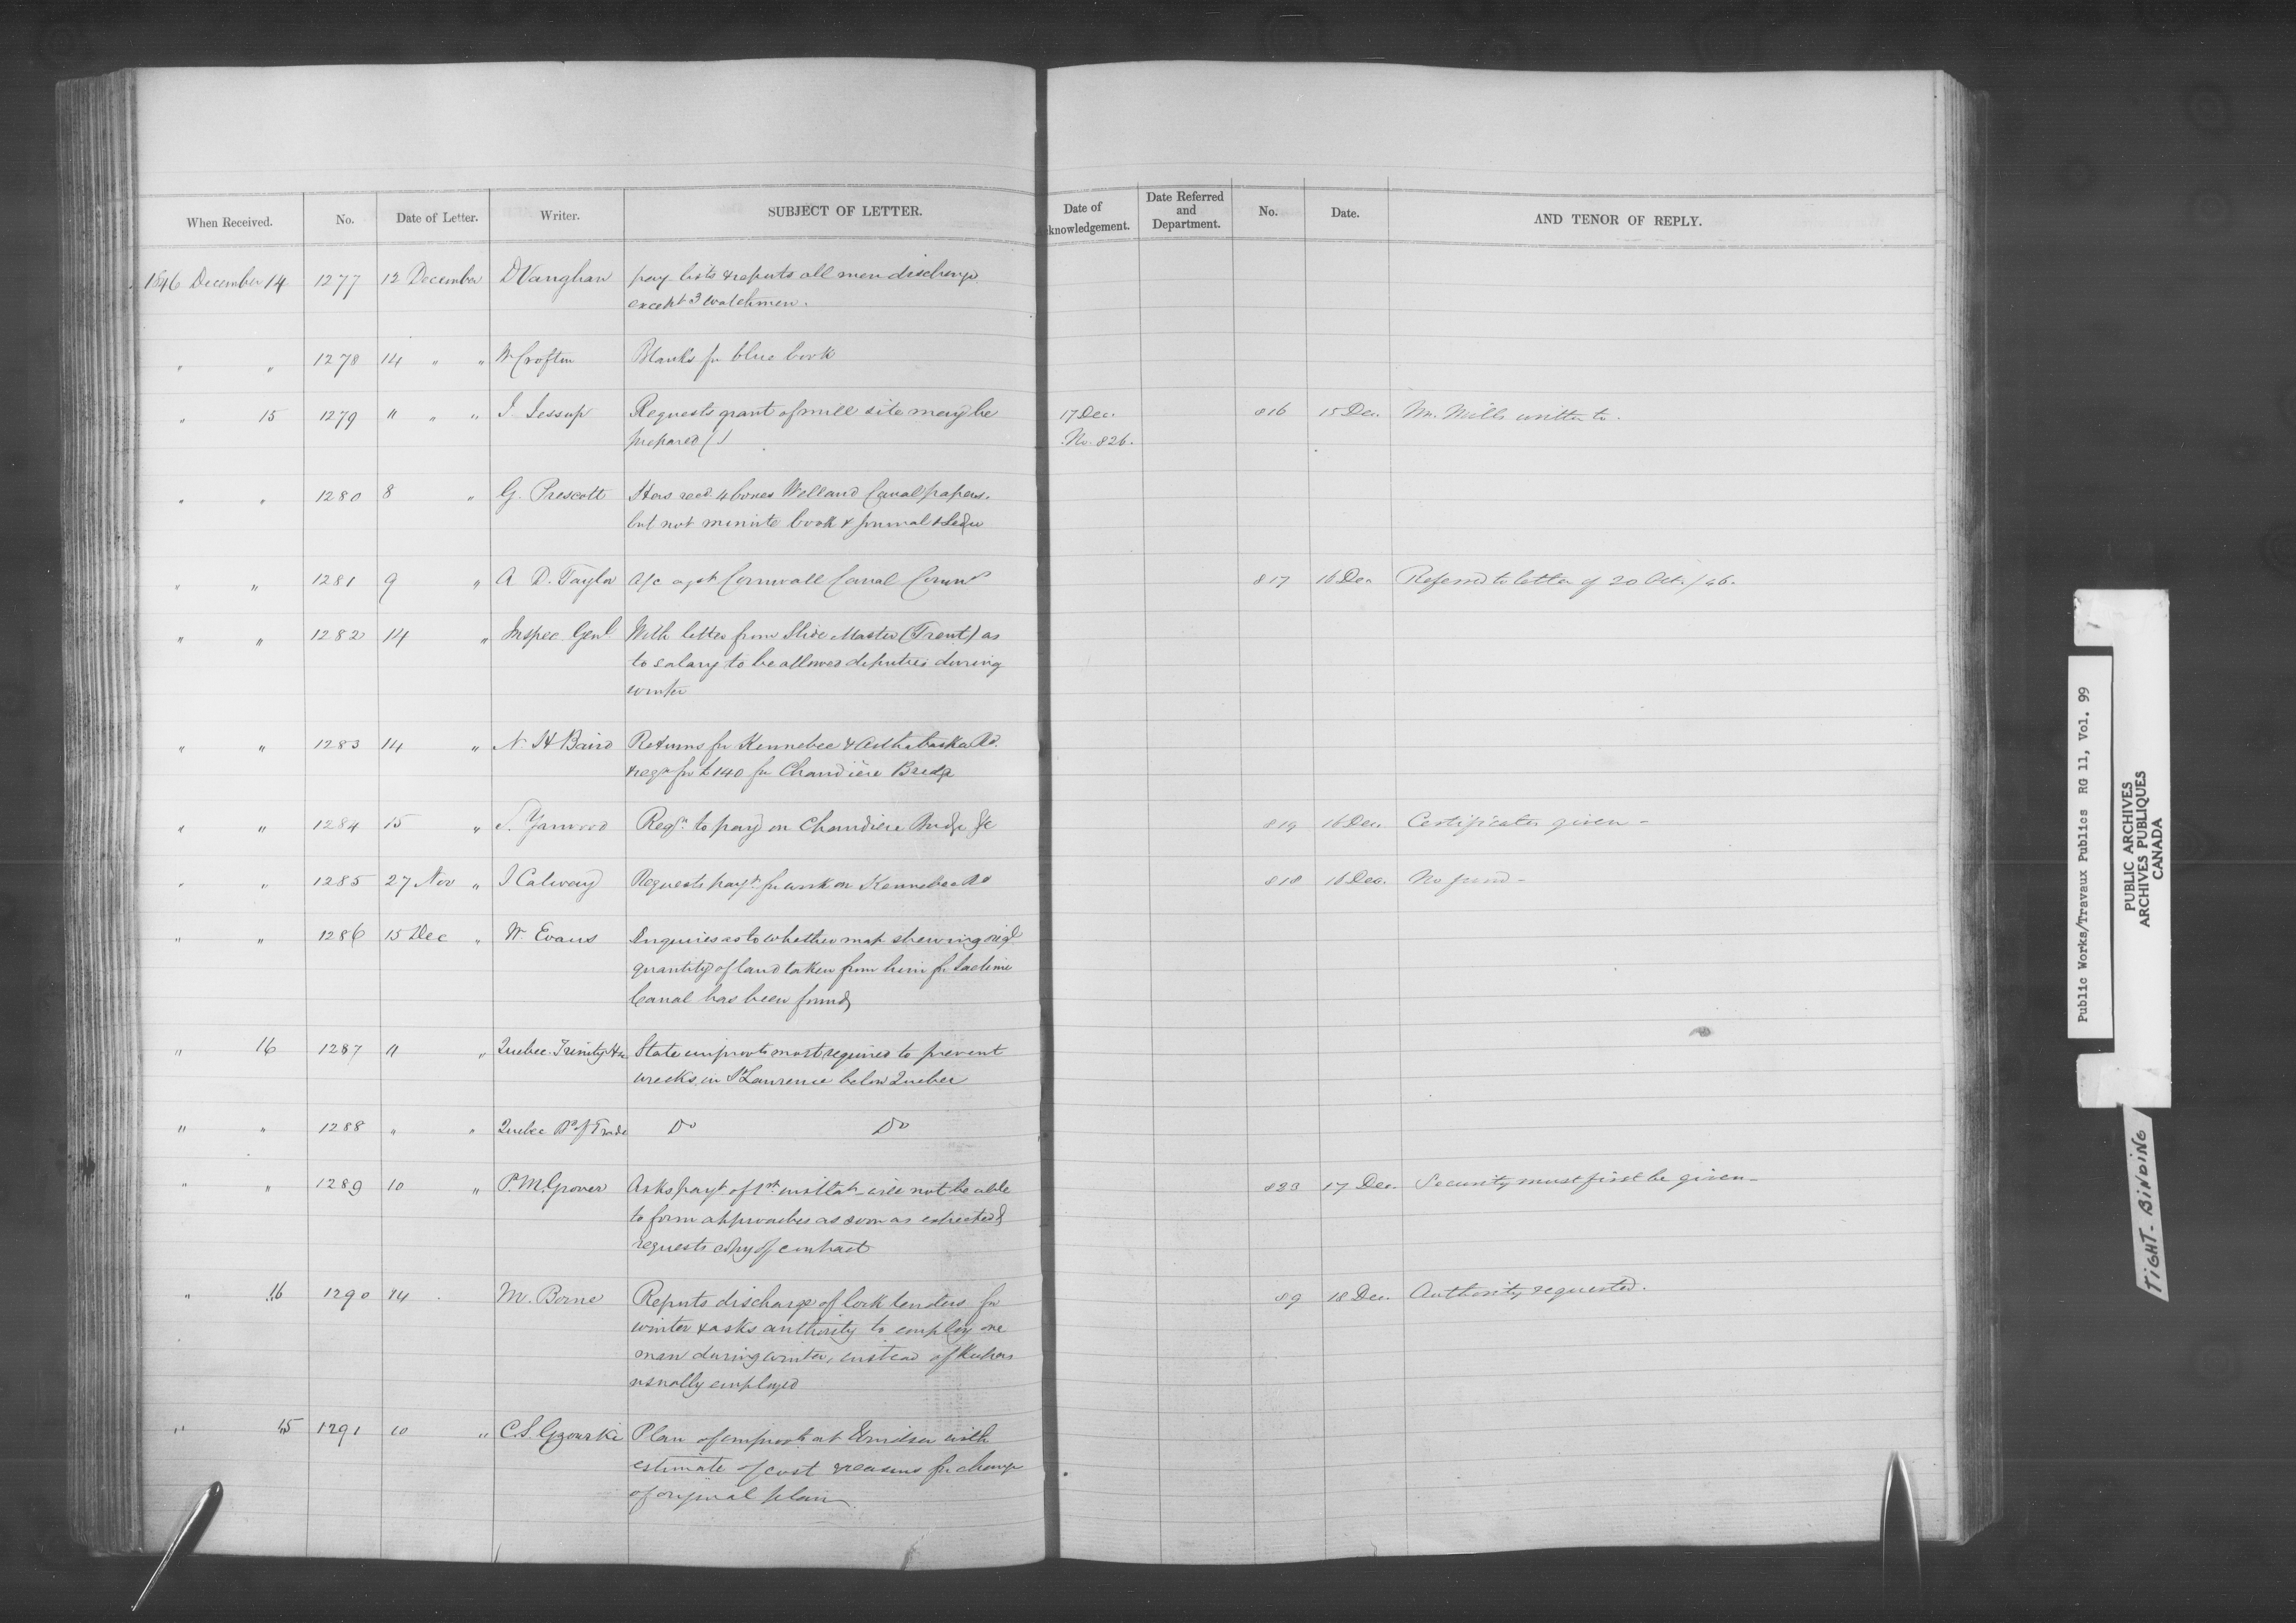 When Received. No. Date of Letter. Writer. SUBJECT OF LETTER. Date of knowledgement. Date Referred and Department. No. Date. AND TENOR OF REPLY.
1846 December 14 1277 12 December D Vaughan pay lists & reports all men discharge
except 3 watchmen.
" " 1278 14 " " W Crofton Blanks for blue book
" 15 1279 " " " J. Jessup Requests grant of mill site may be 17 Dec. 816 15 Dec. Mr. Mills written to.
prepared No. 826.
" " 1280 8 " G. Prescott Has recd. 4 boxes Welland Canal papers.
but not minute book & journal & Ledgr
" " 1281 9 " A D. Taylor a/c agst Cornwall Canal Commrs 817 16 Dec Referred to letter of 20 Oct. /46.
" " 1282 14 " Inspec. Genl. With letter from Slide Master (Trent) as
to salary to be allowed deputies during
winter
" " 1283 14 " N. H Baird Returns for Kennebec & Arthabaska Rd.
& reqn for £140 for Chaudière Bridge
" " 1284 15 " S. Yarwood Reqn. to pay on Chaudiere Bridge &c 819 16 Dec. Certificate given -
" " 1285 27 Nov " J Calway Requests payt. for work on Kennebec Rd 818 16 Dec. No fund -
" " 1286 15 Dec " W. Evans Enquiries as to whether map shewing origl
quantity of land taken from him for Lachine
Canal has been found
" 16 1287 " " Quebec Trinity Hse State improvts most required to prevent
wrecks in St Lawrence below Quebec
" " 1288 " " Quebec Bd of Trade Do Do
" " 1289 10 " P. M. Grover Asks payt of 1st installt will not be able 823 17 Dec. Security must first be given -
to form approaches as soon as expected &
requests copy of contract
" 16 1290 14 M. Borne Reports discharge of lock tenders for 89 18 Dec. Authority requested.
winter & asks authority to employ one
man during winter, instead of
usually employed
" 15 1291 10 " C. S. Gzowski Plan of improvts at with
estimate of cost & reasons for change
of original plan
Public Works/Travaux Publics RG 11, Vol. 99
PUBLIC ARCHIVES
ARCHIVES PUBLIQUES
CANADA
TIGHT BINDING